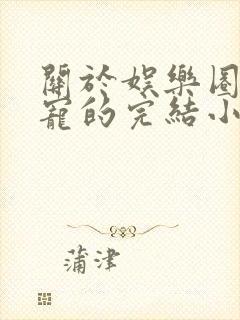 關於娛樂圈
寵的完結小
蒲津